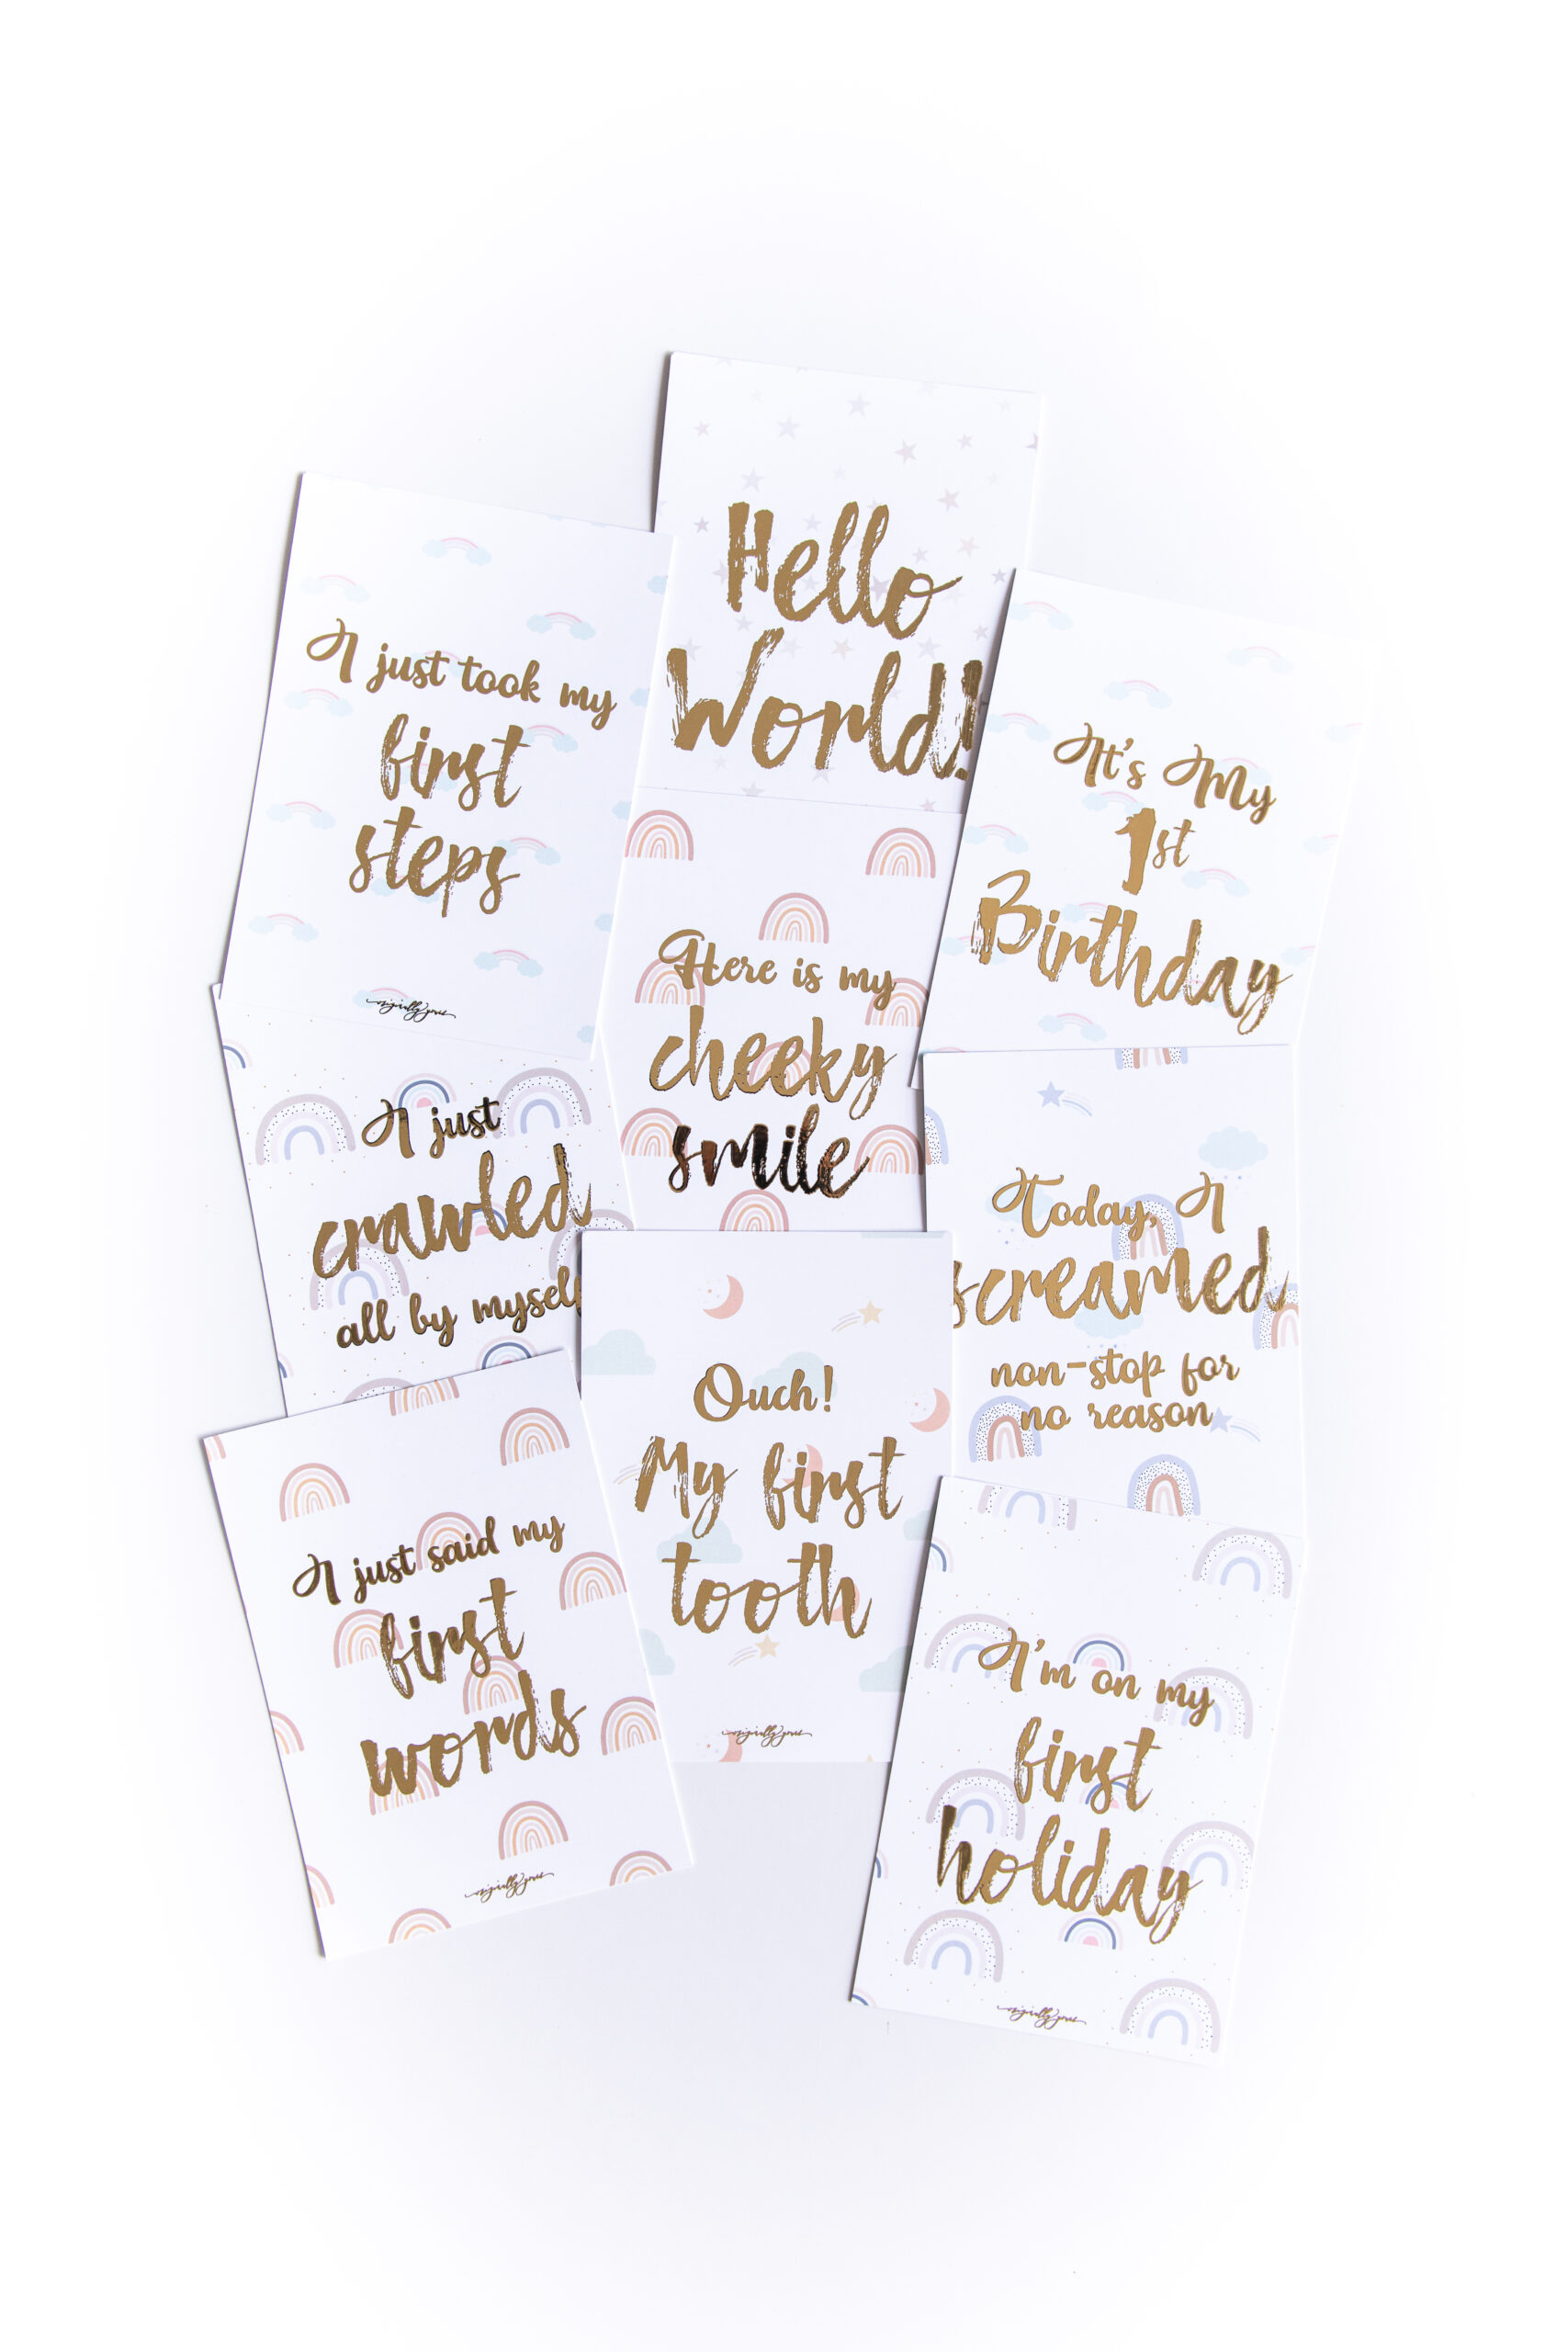 Hello
World!
I just took my
first
steps
originally yours
It's My
1st
Birthday
Here is my
cheeky
smile
I just
crawled
all by myself
Today, I
screamed
non-stop for
no reason
Ouch!
My first
tooth
originally yours
I just said my
first
words
originally yours
I'm on my
first
holiday
originally yours